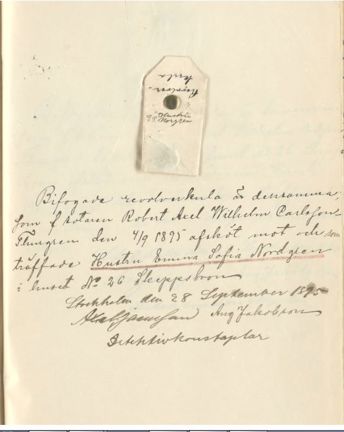 Revolver
kula
Bifogade revolverkula är densamma,
som f skolaren Robert Axel Wilhelm Carlsson
Thungren den 4/9 1895 afsköt mot och som
träffade Hustru Emma Sofia Nordgren
i huset No 26 Skeppsbron
Stockholm den 28 September 1895
Aug Jakobsson
Detektivkonstaplar